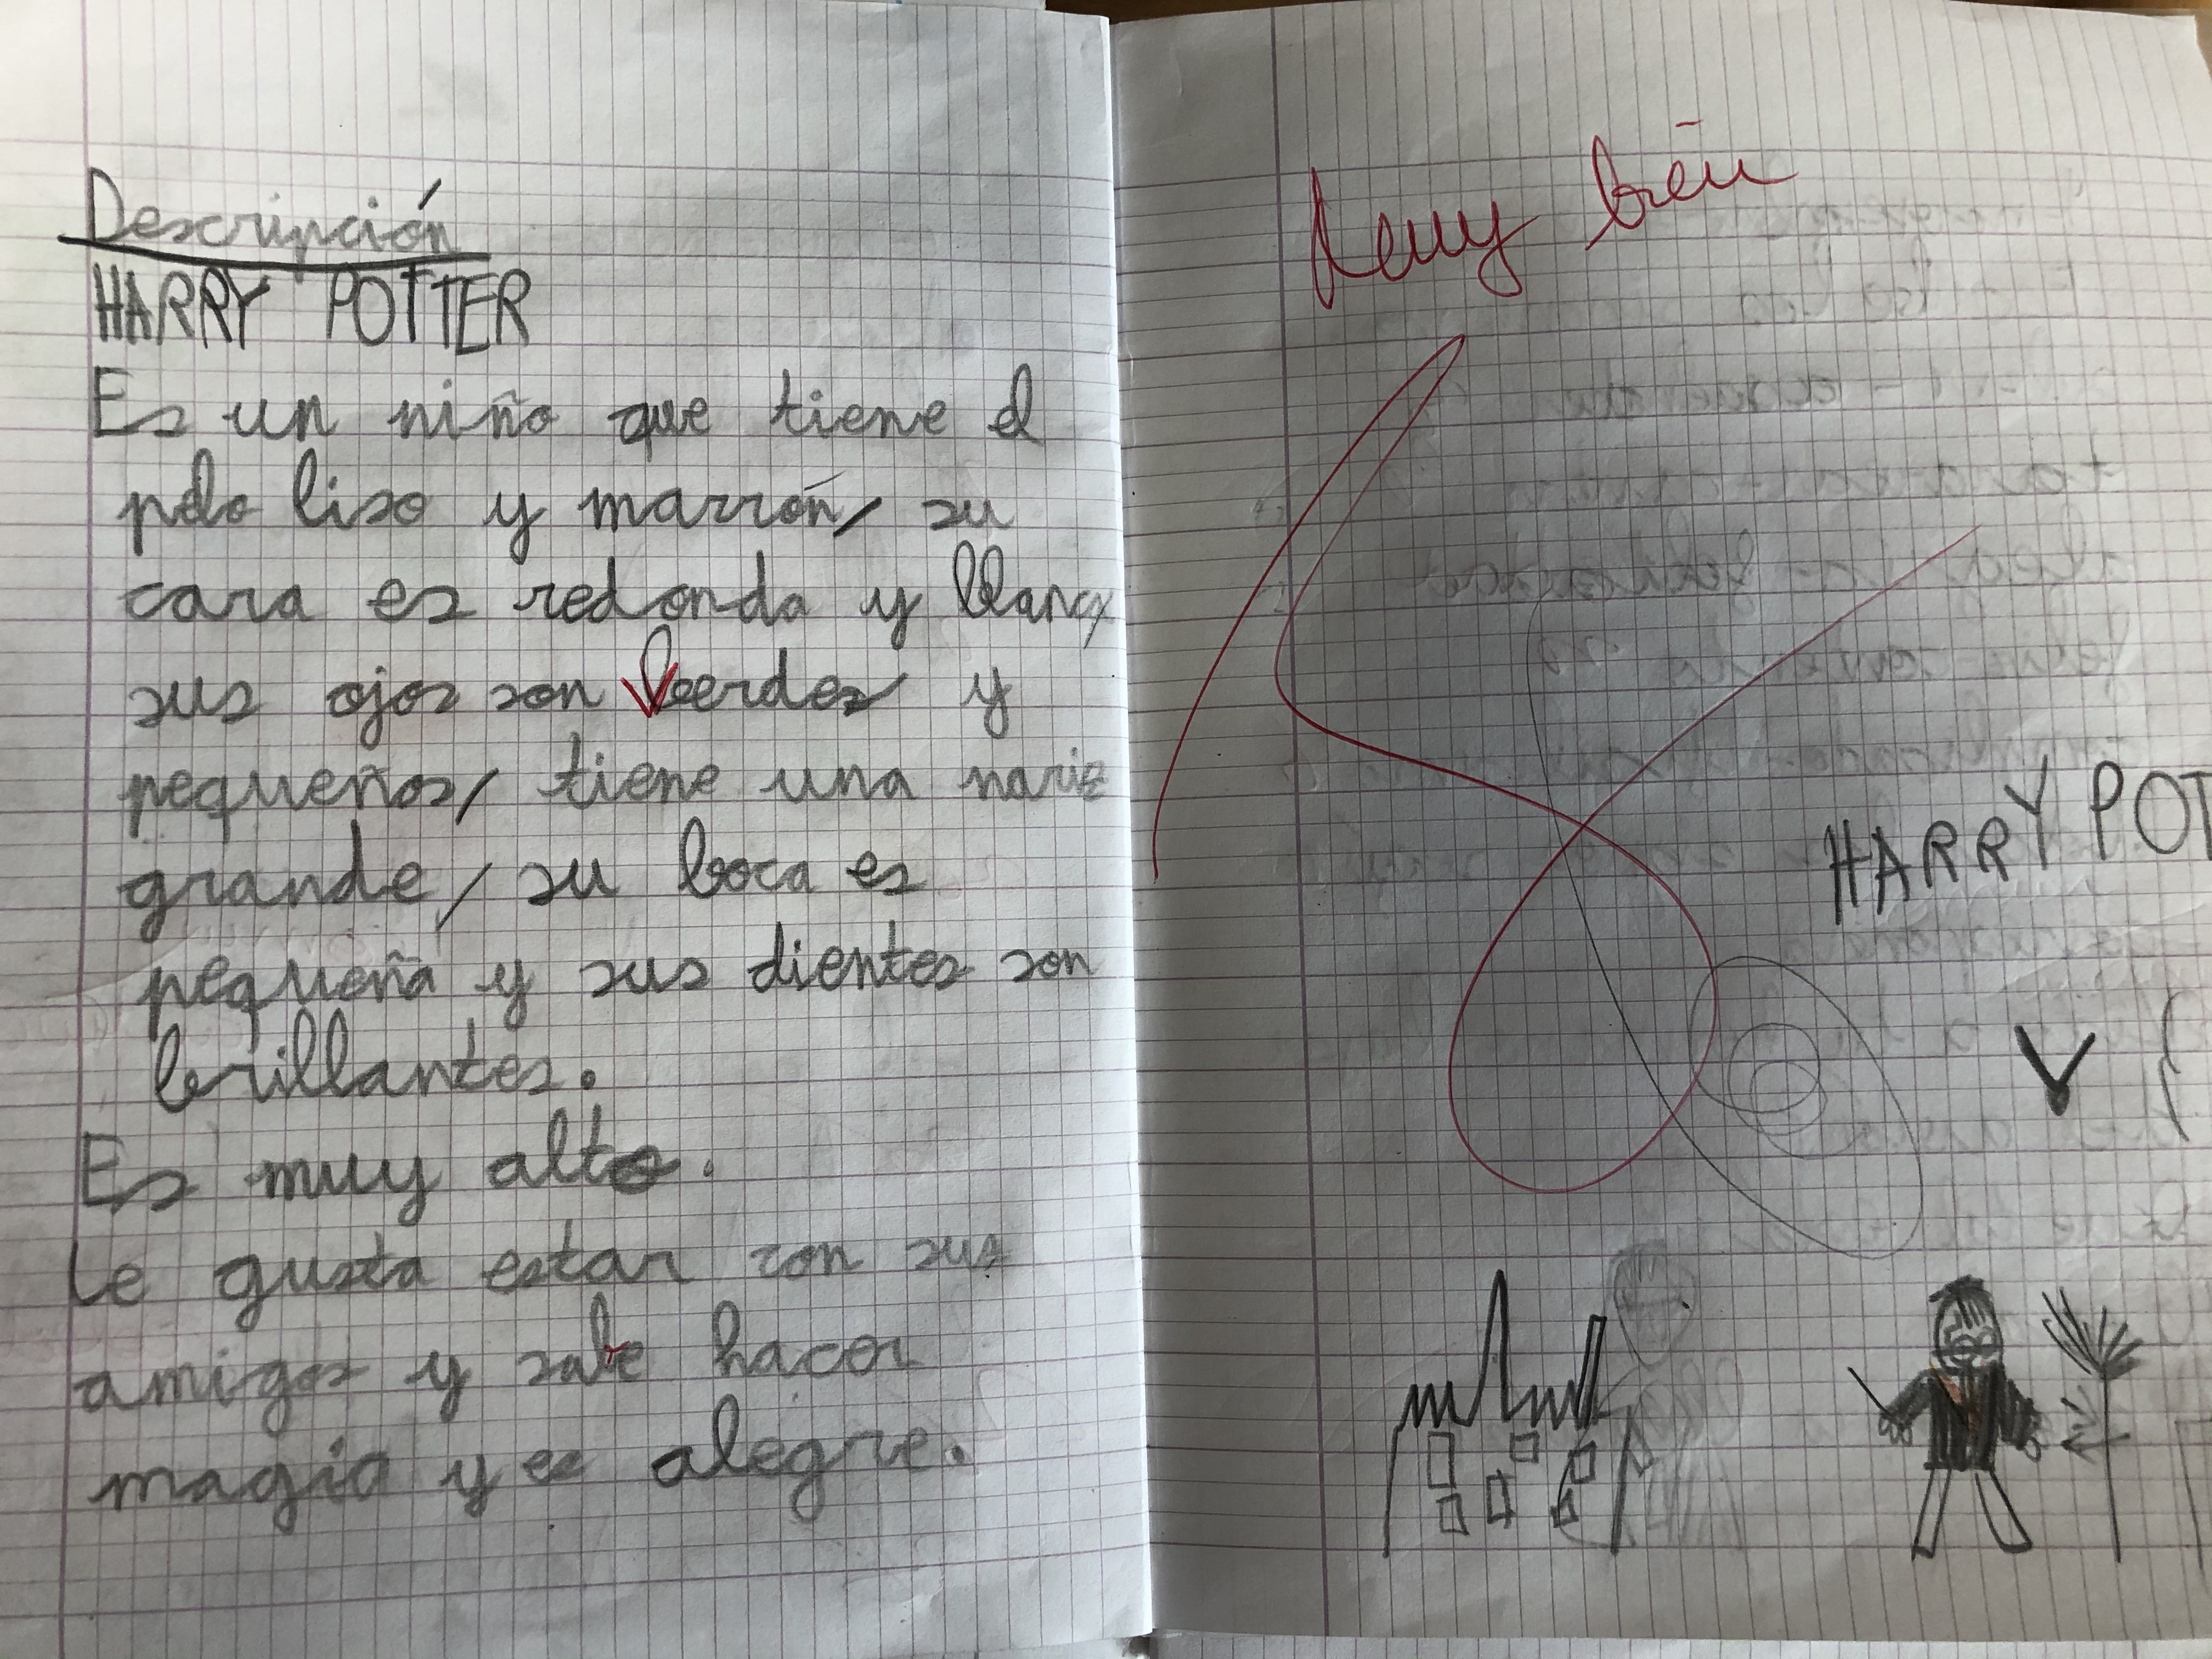 Descripción
HARRY POTTER
Es un niño que tiene el
pelo liso y marrón, su
cara es redonda y blanca,
sus ojos son verdes y
pequeños, tiene una nariz
grande, su boca es
pequeña y sus dientes son
brillantes.
Es muy alto.
Le gusta estar con sus
amigos y sabe hacer
magia y es alegre.
Muy bien
HARRY POT